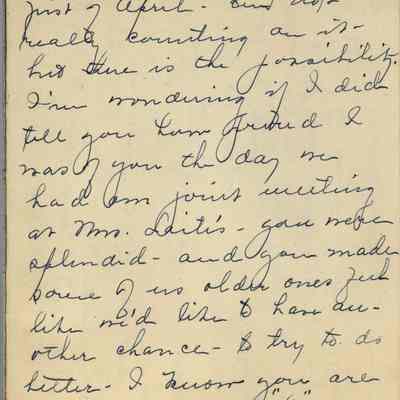 first of April - and not
really counting on it -
but there is the possibility.
I'm wondering if I did
tell you how proud I
was of you the day we
had our joint meeting
at Mrs. - you were
splendid - and you made
some of us older ones feel
like we'd like to have an-
other chance - to try to do
better - I know you are